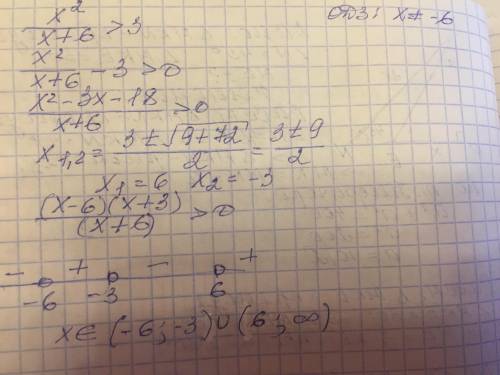 x²/(x+6) > 3
ОДЗ: x ≠ -6
x²/(x+6) - 3 > 0
(x² - 3x - 18)/(x+6) > 0
x₁,₂ = (3 ± √(9+72))/2 = (3 ± 9)/2
x₁ = 6 x₂ = -3
(x-6)(x+3)/(x+6) > 0
- + - +
-6 -3 6
x ∈ (-6; -3) ∪ (6; ∞)